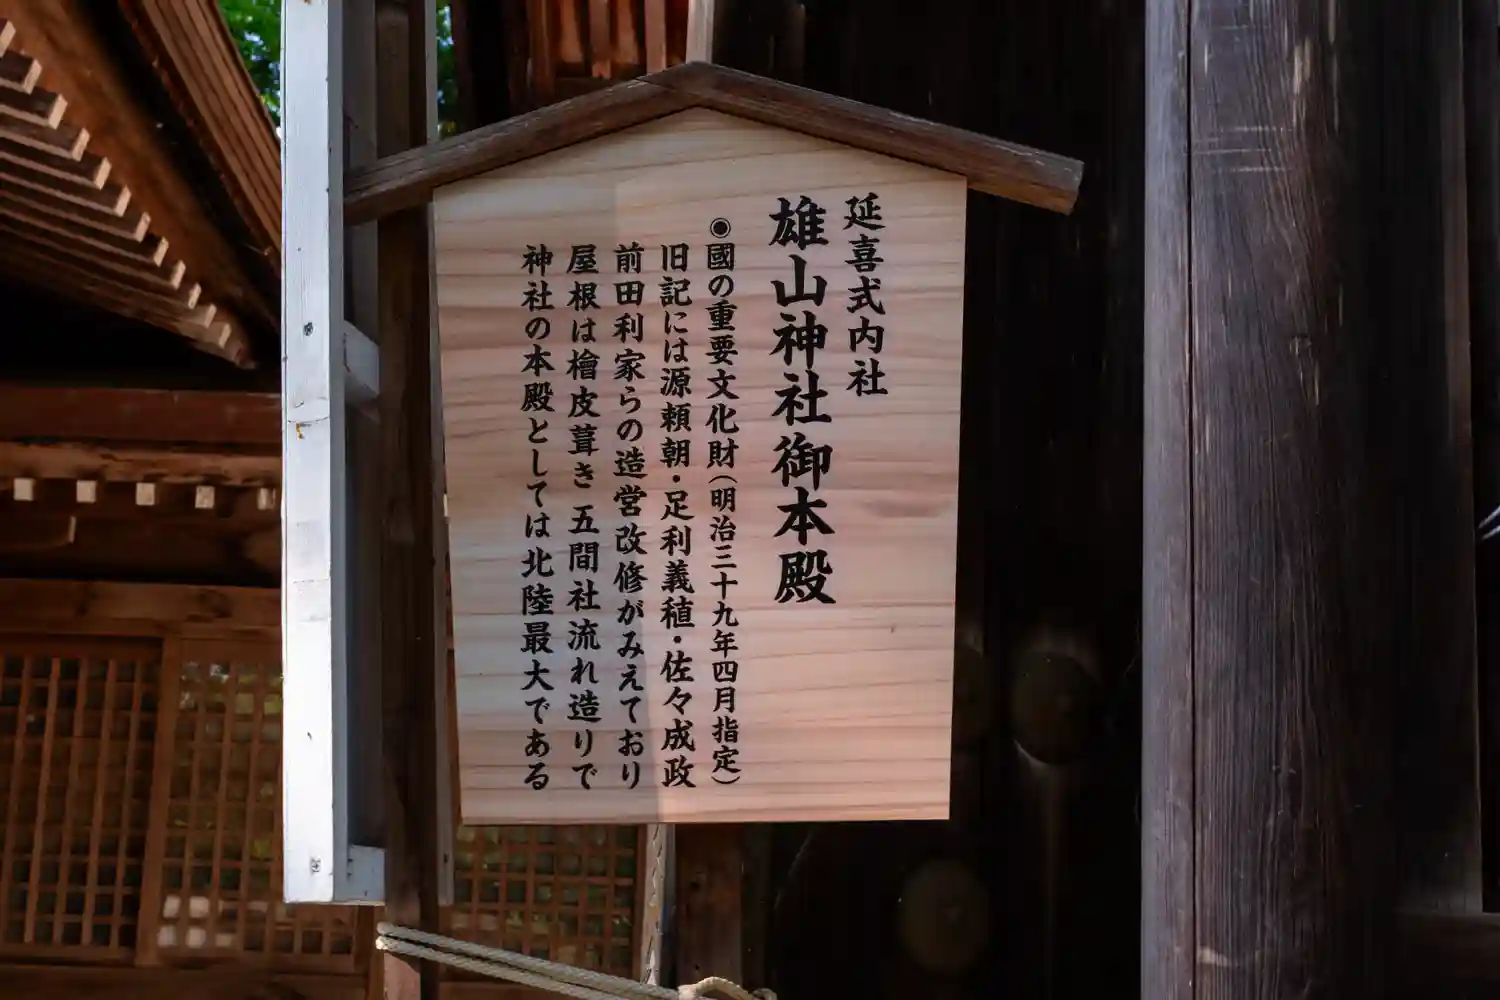 延喜式内社
雄山神社御本殿
◉國の重要文化財（明治三十九年四月指定）
旧記には源頼朝・足利義稙・佐々成政
前田利家らの造営改修がみえており
屋根は檜皮葺き五間社流れ造りで
神社の本殿としては北陸最大である